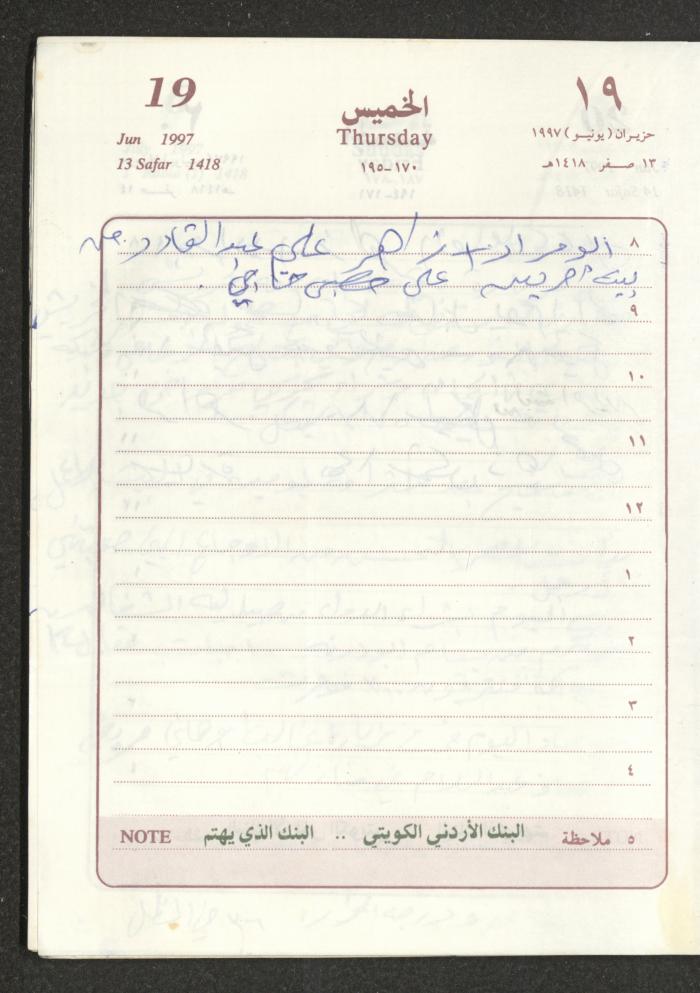 19
الخميس
١٩
Jun 1997
Thursday
حزيران (يونيو) ١٩٩٧
13 Safar 1418
١٧٠-١٩٥
١٣ صفر ١٤١٨هـ
٨
ابو مراد + زاهر علي عبد القادر من
بيت امرين على
٩
١٠
١١
١٢
١
٢
٣
٤
٥ ملاحظة البنك الأردني الكويتي .. البنك الذي يهتم NOTE